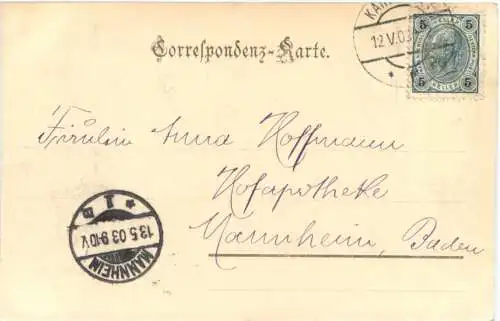 Correspondenz-Karte.
12.V.03
5 5
HELLER
5 5
Fräulein Anna Hoffmann
Hofapotheke
Mannheim, Baden
MANNHEIM
13.5.03 9-10V
* 1 B